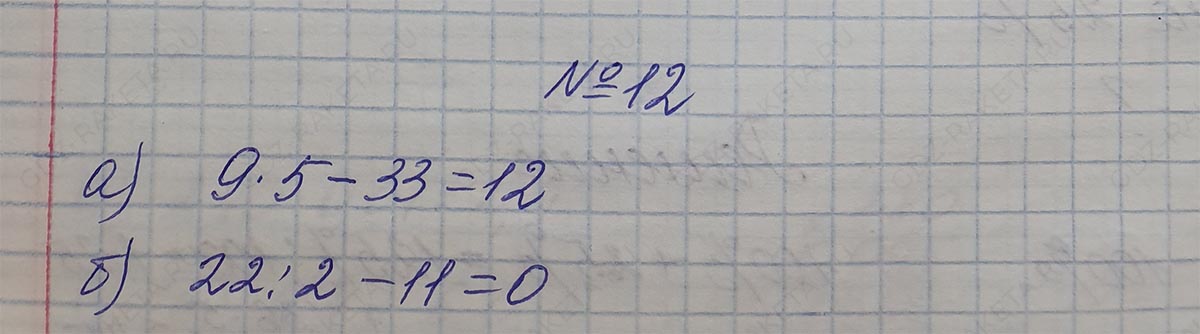 №12
а) 9·5-33=12
б) 22:2-11=0